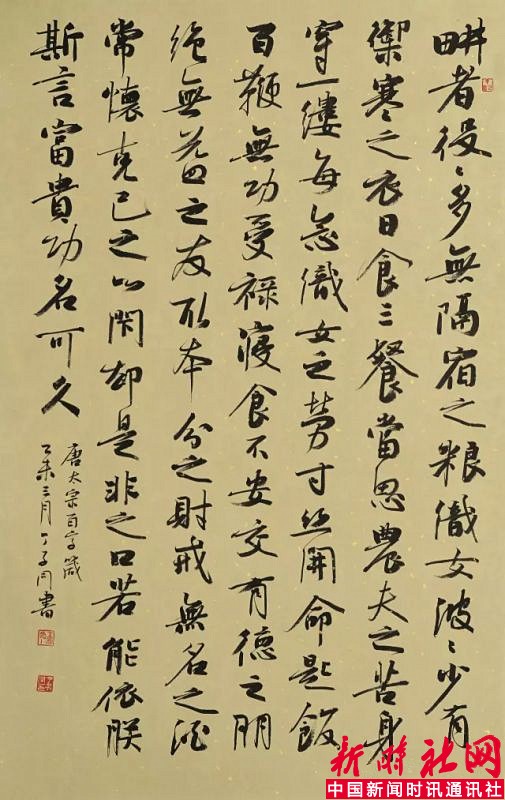 畊者役々多無隔宿之粮織女波々少有
禦寒之衣日食三餐當思農夫之苦身
穿一縷每念織女之勞寸丝開命匙飯
百鞭無功受禄寝食不安交有德之朋
绝無益之友取本分之財戒無名之酒
常懷克己之心閉却是非之口若能依朕
斯言富貴功名可久
唐太宗百字箴
乙未三月丁子書
新时社网
中国新闻时讯通讯社